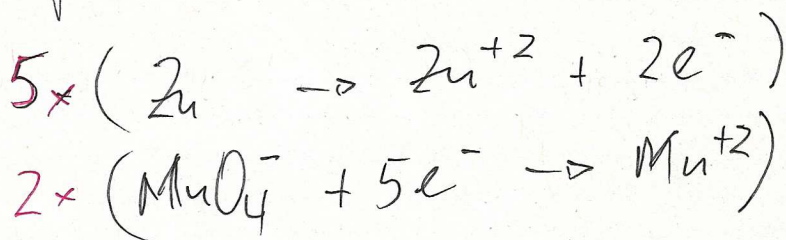 5x ( Zn → Zn⁺² + 2e⁻ )
2x ( MnO₄⁻ + 5e⁻ → Mn⁺² )